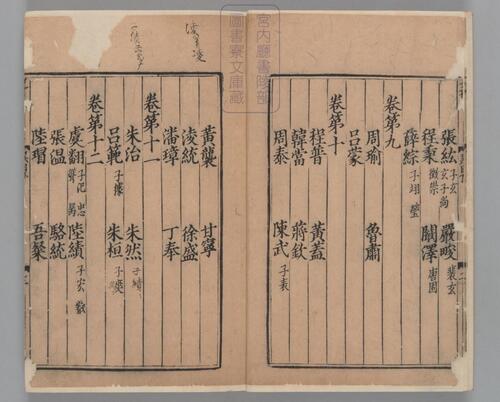 宮内廳書陵部
圖書寮文庫藏
張紘 子玄 玄子尚 嚴畯 裴玄
程秉 徵崇 闞澤 唐固
薛綜 子珝 瑩
卷第九
周瑜 魯肅
呂蒙
卷第十
程普 黃蓋
韓當 蔣欽
周泰 陳武 子表
襲 甘寧
淩統 徐盛
潘璋 丁奉
卷第十一
朱治 朱然 子績
呂範 子據 朱桓 子異
卷第十二
虞翻 子汜 忠 聳 昺 陸績 子宏 叡
張温 駱統
陸瑁 吾粲